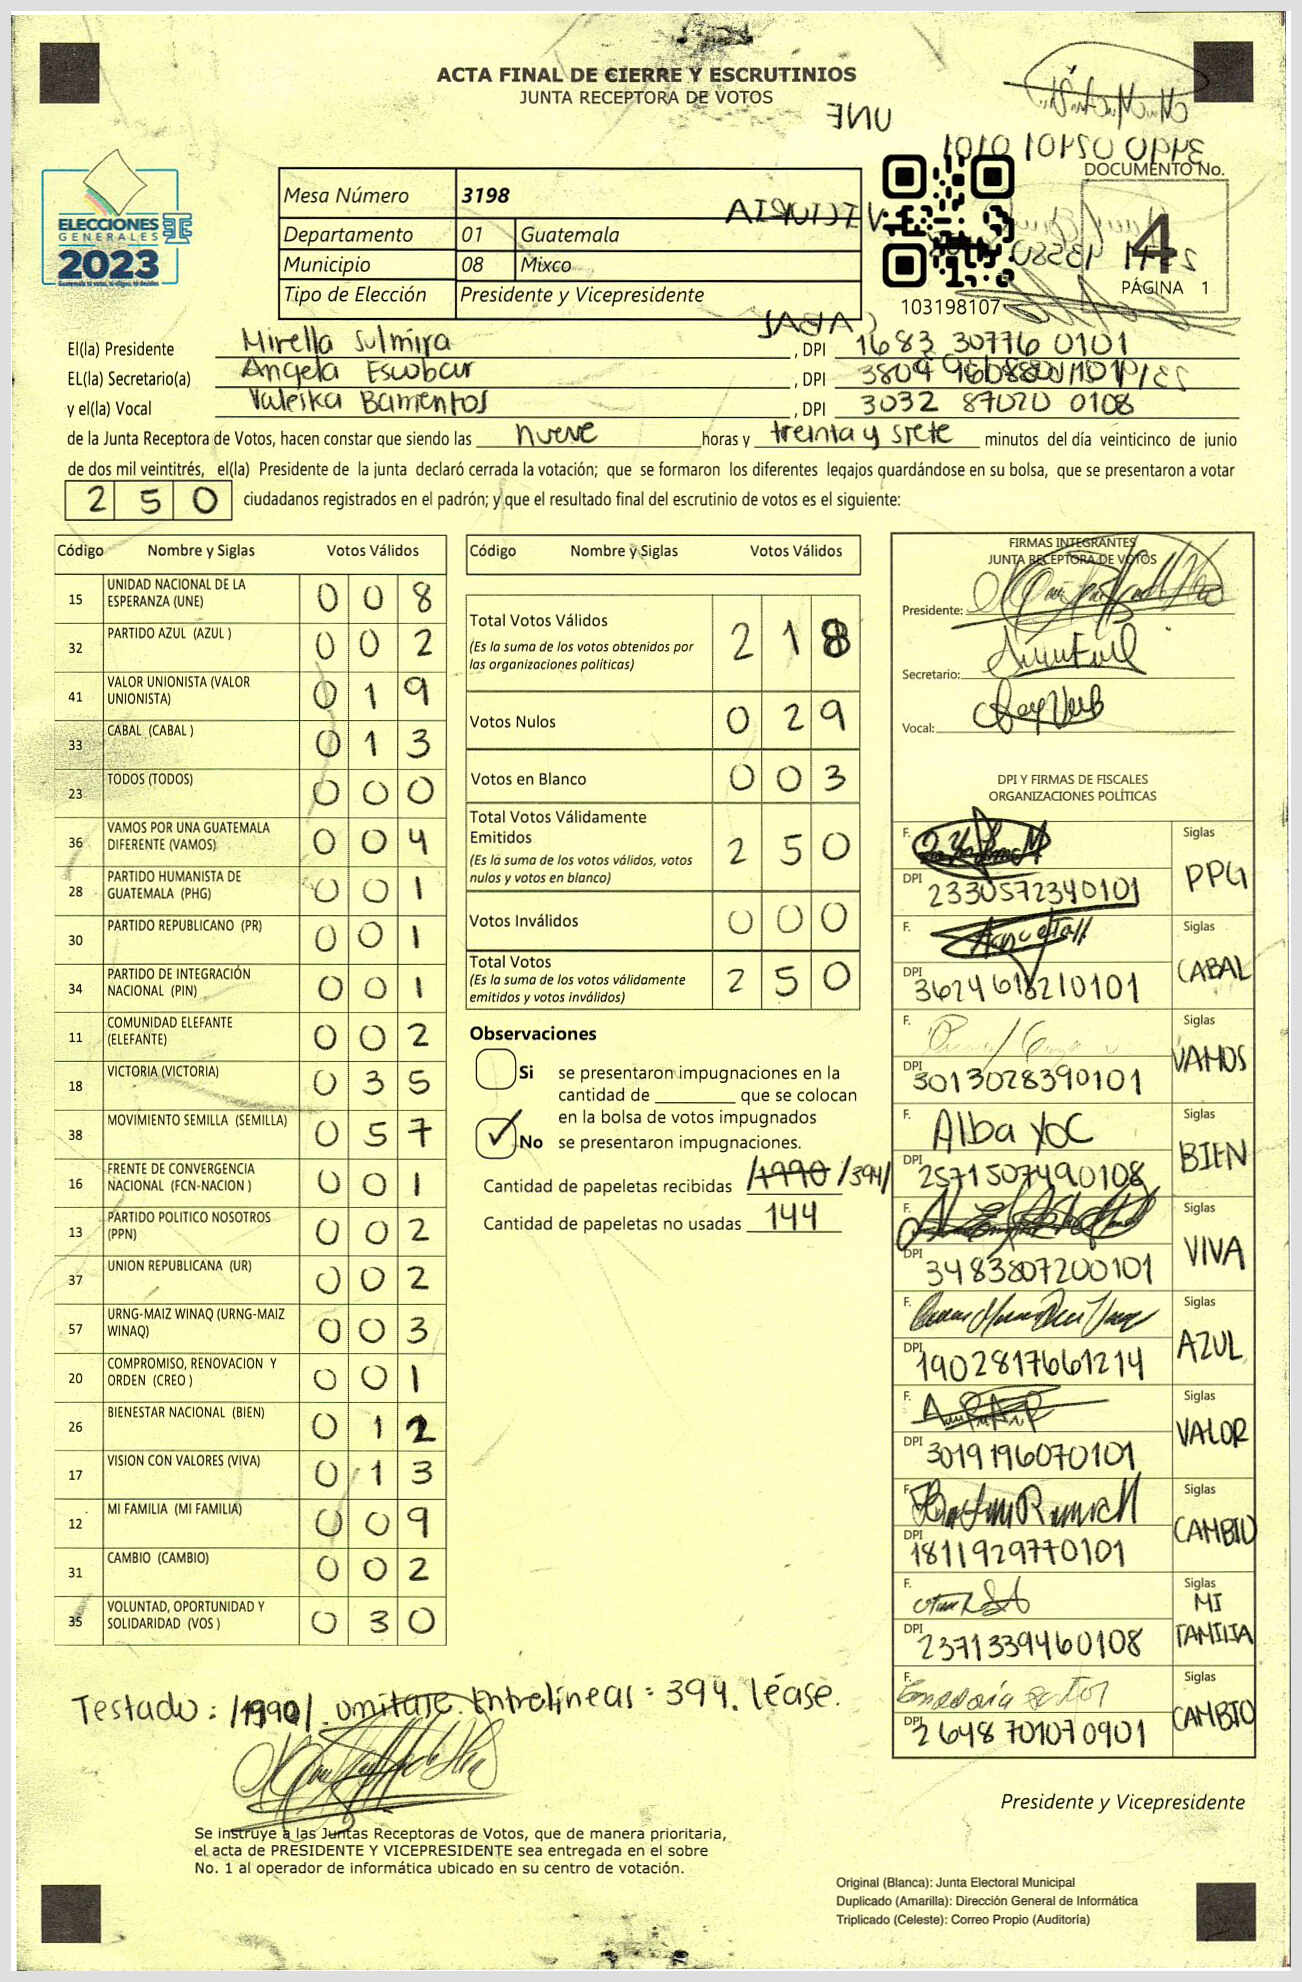 ACTA FINAL DE CIERRE Y ESCRUTINIOS
JUNTA RECEPTORA DE VOTOS
UNE
DOCUMENTO No.
4
PÁGINA 1
103198107
ELECCIONES
GENERALES
2023
Mesa Número 3198
Departamento 01 Guatemala
Municipio 08 Mixco
Tipo de Elección Presidente y Vicepresidente
VICTORIA
CABAL
El(la) Presidente Mirella Sulmira , DPI 1683 30776 0101
EL(la) Secretario(a) Angela Escobar , DPI 3804
y el(la) Vocal Valeska Barrientos , DPI 3032 87020 0108
de la Junta Receptora de Votos, hacen constar que siendo las nueve horas y treinta y siete minutos del día veinticinco de junio
de dos mil veintitrés, el(la) Presidente de la junta declaró cerrada la votación; que se formaron los diferentes legajos quardándose en su bolsa, que se presentaron a votar
2 5 0 ciudadanos registrados en el padrón; y que el resultado final del escrutinio de votos es el siguiente:
Código Nombre y Siglas Votos Válidos
15 UNIDAD NACIONAL DE LA ESPERANZA (UNE) 0 0 8
32 PARTIDO AZUL (AZUL ) 0 0 2
41 VALOR UNIONISTA (VALOR UNIONISTA) 0 1 9
33 CABAL (CABAL ) 0 1 3
23 TODOS (TODOS) 0 0 0
36 VAMOS POR UNA GUATEMALA DIFERENTE (VAMOS) 0 0 4
28 PARTIDO HUMANISTA DE GUATEMALA (PHG) 0 0 1
30 PARTIDO REPUBLICANO (PR) 0 0 1
34 PARTIDO DE INTEGRACIÓN NACIONAL (PIN) 0 0 1
11 COMUNIDAD ELEFANTE (ELEFANTE) 0 0 2
18 VICTORIA (VICTORIA) 0 3 5
38 MOVIMIENTO SEMILLA (SEMILLA) 0 5 7
16 FRENTE DE CONVERGENCIA NACIONAL (FCN-NACION ) 0 0 1
13 PARTIDO POLITICO NOSOTROS (PPN) 0 0 2
37 UNION REPUBLICANA (UR) 0 0 2
57 URNG-MAIZ WINAQ (URNG-MAIZ WINAQ) 0 0 3
20 COMPROMISO, RENOVACION Y ORDEN (CREO ) 0 0 1
26 BIENESTAR NACIONAL (BIEN) 0 1 2
17 VISION CON VALORES (VIVA) 0 1 3
12 MI FAMILIA (MI FAMILIA) 0 0 9
31 CAMBIO (CAMBIO) 0 0 2
35 VOLUNTAD, OPORTUNIDAD Y SOLIDARIDAD (VOS ) 0 3 0
Código Nombre y Siglas Votos Válidos
Total Votos Válidos 2 1 8
(Es la suma de los votos obtenidos por
las organizaciones políticas)
Votos Nulos 0 2 9
Votos en Blanco 0 0 3
Total Votos Válidamente
Emitidos 2 5 0
(Es la suma de los votos válidos, votos
nulos y votos en blanco)
Votos Inválidos 0 0 0
Total Votos 2 5 0
(Es la suma de los votos válidamente
emitidos y votos inválidos)
Observaciones
Si se presentaron impugnaciones en la
cantidad de ________ que se colocan
en la bolsa de votos impugnados
✓ No se presentaron impugnaciones.
Cantidad de papeletas recibidas /1990/394/
Cantidad de papeletas no usadas 144
FIRMAS INTEGRANTES
JUNTA RECEPTORA DE VOTOS
Presidente:
Secretario:
Vocal:
DPI Y FIRMAS DE FISCALES
ORGANIZACIONES POLÍTICAS
F. Siglas
DPI 2330572340101 PPG
F. Siglas
DPI 3624618210101 CABAL
F. Siglas
DPI 3013028390101 VAMOS
F. Alba Yoc Siglas
DPI 2571507490108 BIEN
F. Siglas
DPI 3483807200101 VIVA
F. Siglas
DPI 1902817661214 AZUL
F. Siglas
DPI 3019196070101 VALOR
F. Siglas
DPI 1811929770101 CAMBIO
F. Siglas
DPI 2371339460108 MI FAMILIA
F. Siglas
DPI 2648701070901 CAMBIO
Testado: /1990/. omitase. Entrelíneas: 394. léase.
Presidente y Vicepresidente
Se instruye a las Juntas Receptoras de Votos, que de manera prioritaria,
el acta de PRESIDENTE Y VICEPRESIDENTE sea entregada en el sobre
No. 1 al operador de informática ubicado en su centro de votación.
Original (Blanca): Junta Electoral Municipal
Duplicado (Amarilla): Dirección General de Informática
Triplicado (Celeste): Correo Propio (Auditoría)